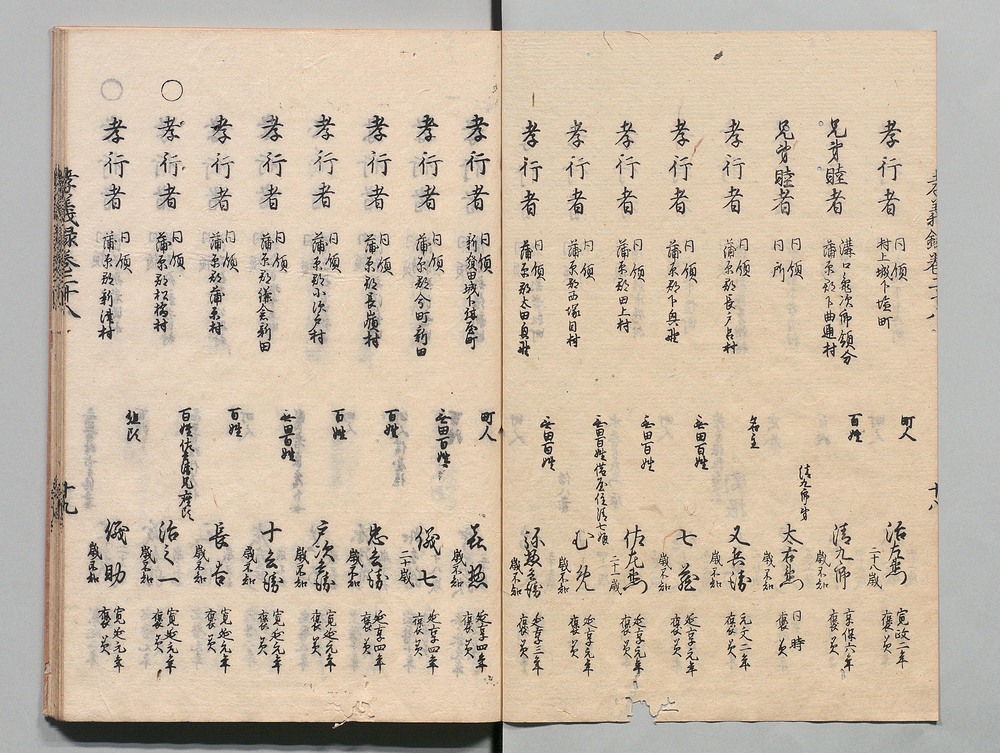 孝行者 同領 村上城下塩町 町人 治左衛門 二十八歳 寛政二年 褒美
兄弟睦者 溝口亀次郎領分 蒲原郡下曲通村 百姓 清九郎 歳不知 享保六年 褒美
兄弟睦者 同領 同所 清九郎弟 太右衛門 歳不知 同時 褒美
孝行者 同領 蒲原郡長戸呂村 名主 又兵衛 歳不知 元文二年 褒美
孝行者 同領 蒲原郡下興野 無田百姓 七蔵 歳不知 延享元年 褒美
孝行者 同領 蒲原郡田上村 無田百姓 佐左衛門 二十二歳 延享元年 褒美
孝行者 同領 蒲原郡西塚目村 無田百姓借屋住清七娘 歳不知 延享元年 褒美
孝行者 同領 蒲原郡太田興野 無田百姓 弥惣兵衛 歳不知 延享三年 褒美
十八
孝行者 同領 新発田城下 町人 歳不知 延享四年 褒美
孝行者 同領 蒲原郡今町新田 無田百姓 儀七 二十歳 延享四年 褒美
孝行者 同領 蒲原郡長嶺村 百姓 忠兵衛 歳不知 延享四年 褒美
孝行者 同領 蒲原郡小次戸村 百姓 戸次兵衛 歳不知 寛延元年 褒美
孝行者 同領 蒲原郡鎌倉新田 無田百姓 十兵衛 歳不知 寛延元年 褒美
孝行者 同領 蒲原郡蒲原村 百姓 長吉 歳不知 寛延元年 褒美
○ 孝行者 同領 蒲原郡松橋村 百姓 治之一 歳不知 寛延元年 褒美
孝行者 同領 蒲原郡新津村 組頭 儀助 歳不知 寛延元年 褒美
孝義録巻二十八 十九